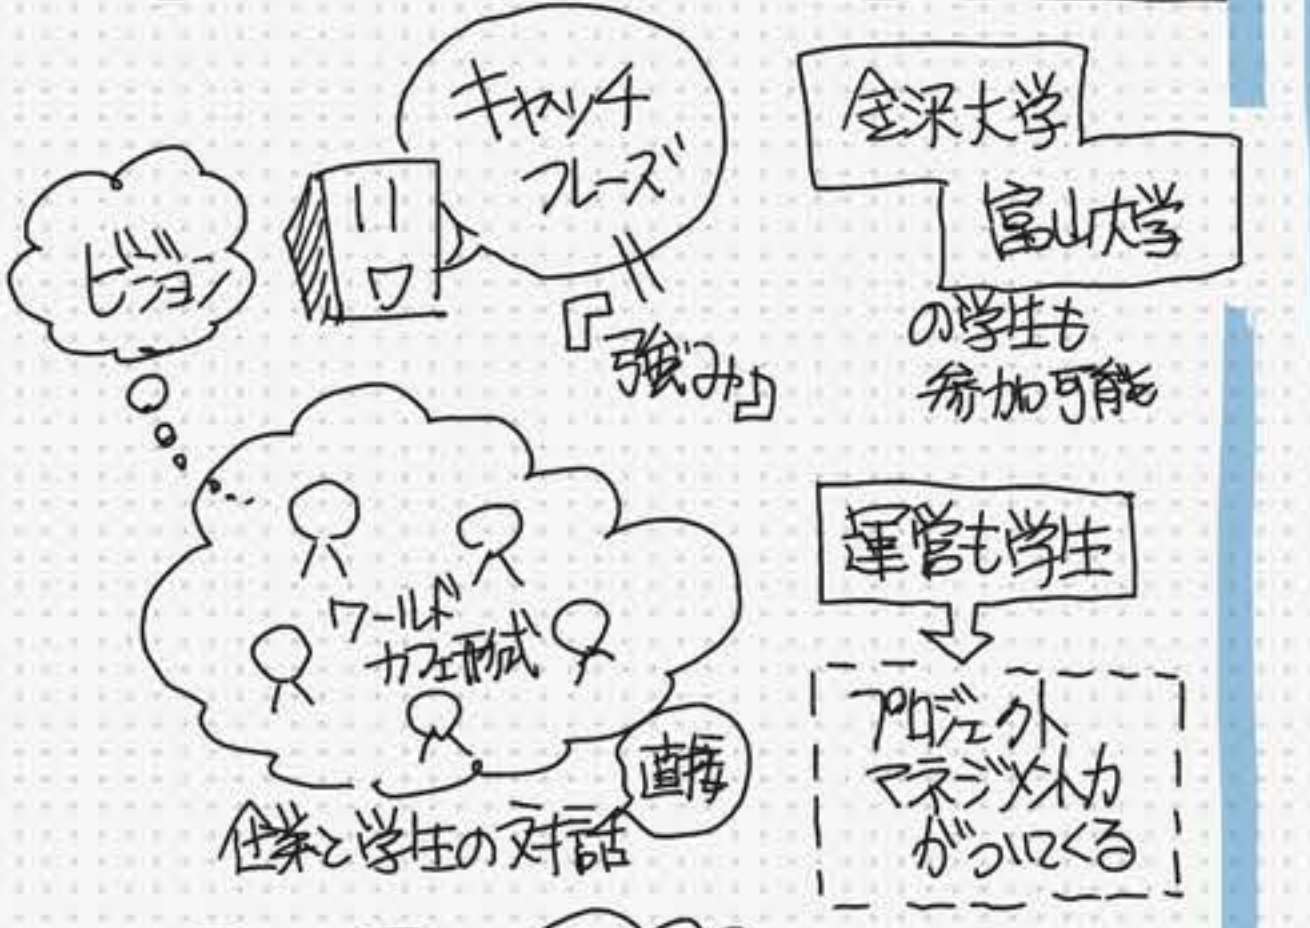 キャッチ
フレーズ
ビジョン
『強み』
金沢大学
富山大学
の学生も
参加可能
ワールド
カフェ形式
直接
企業と学生の対話
運営も学生
プロジェクト
マネジメント力
がついてくる